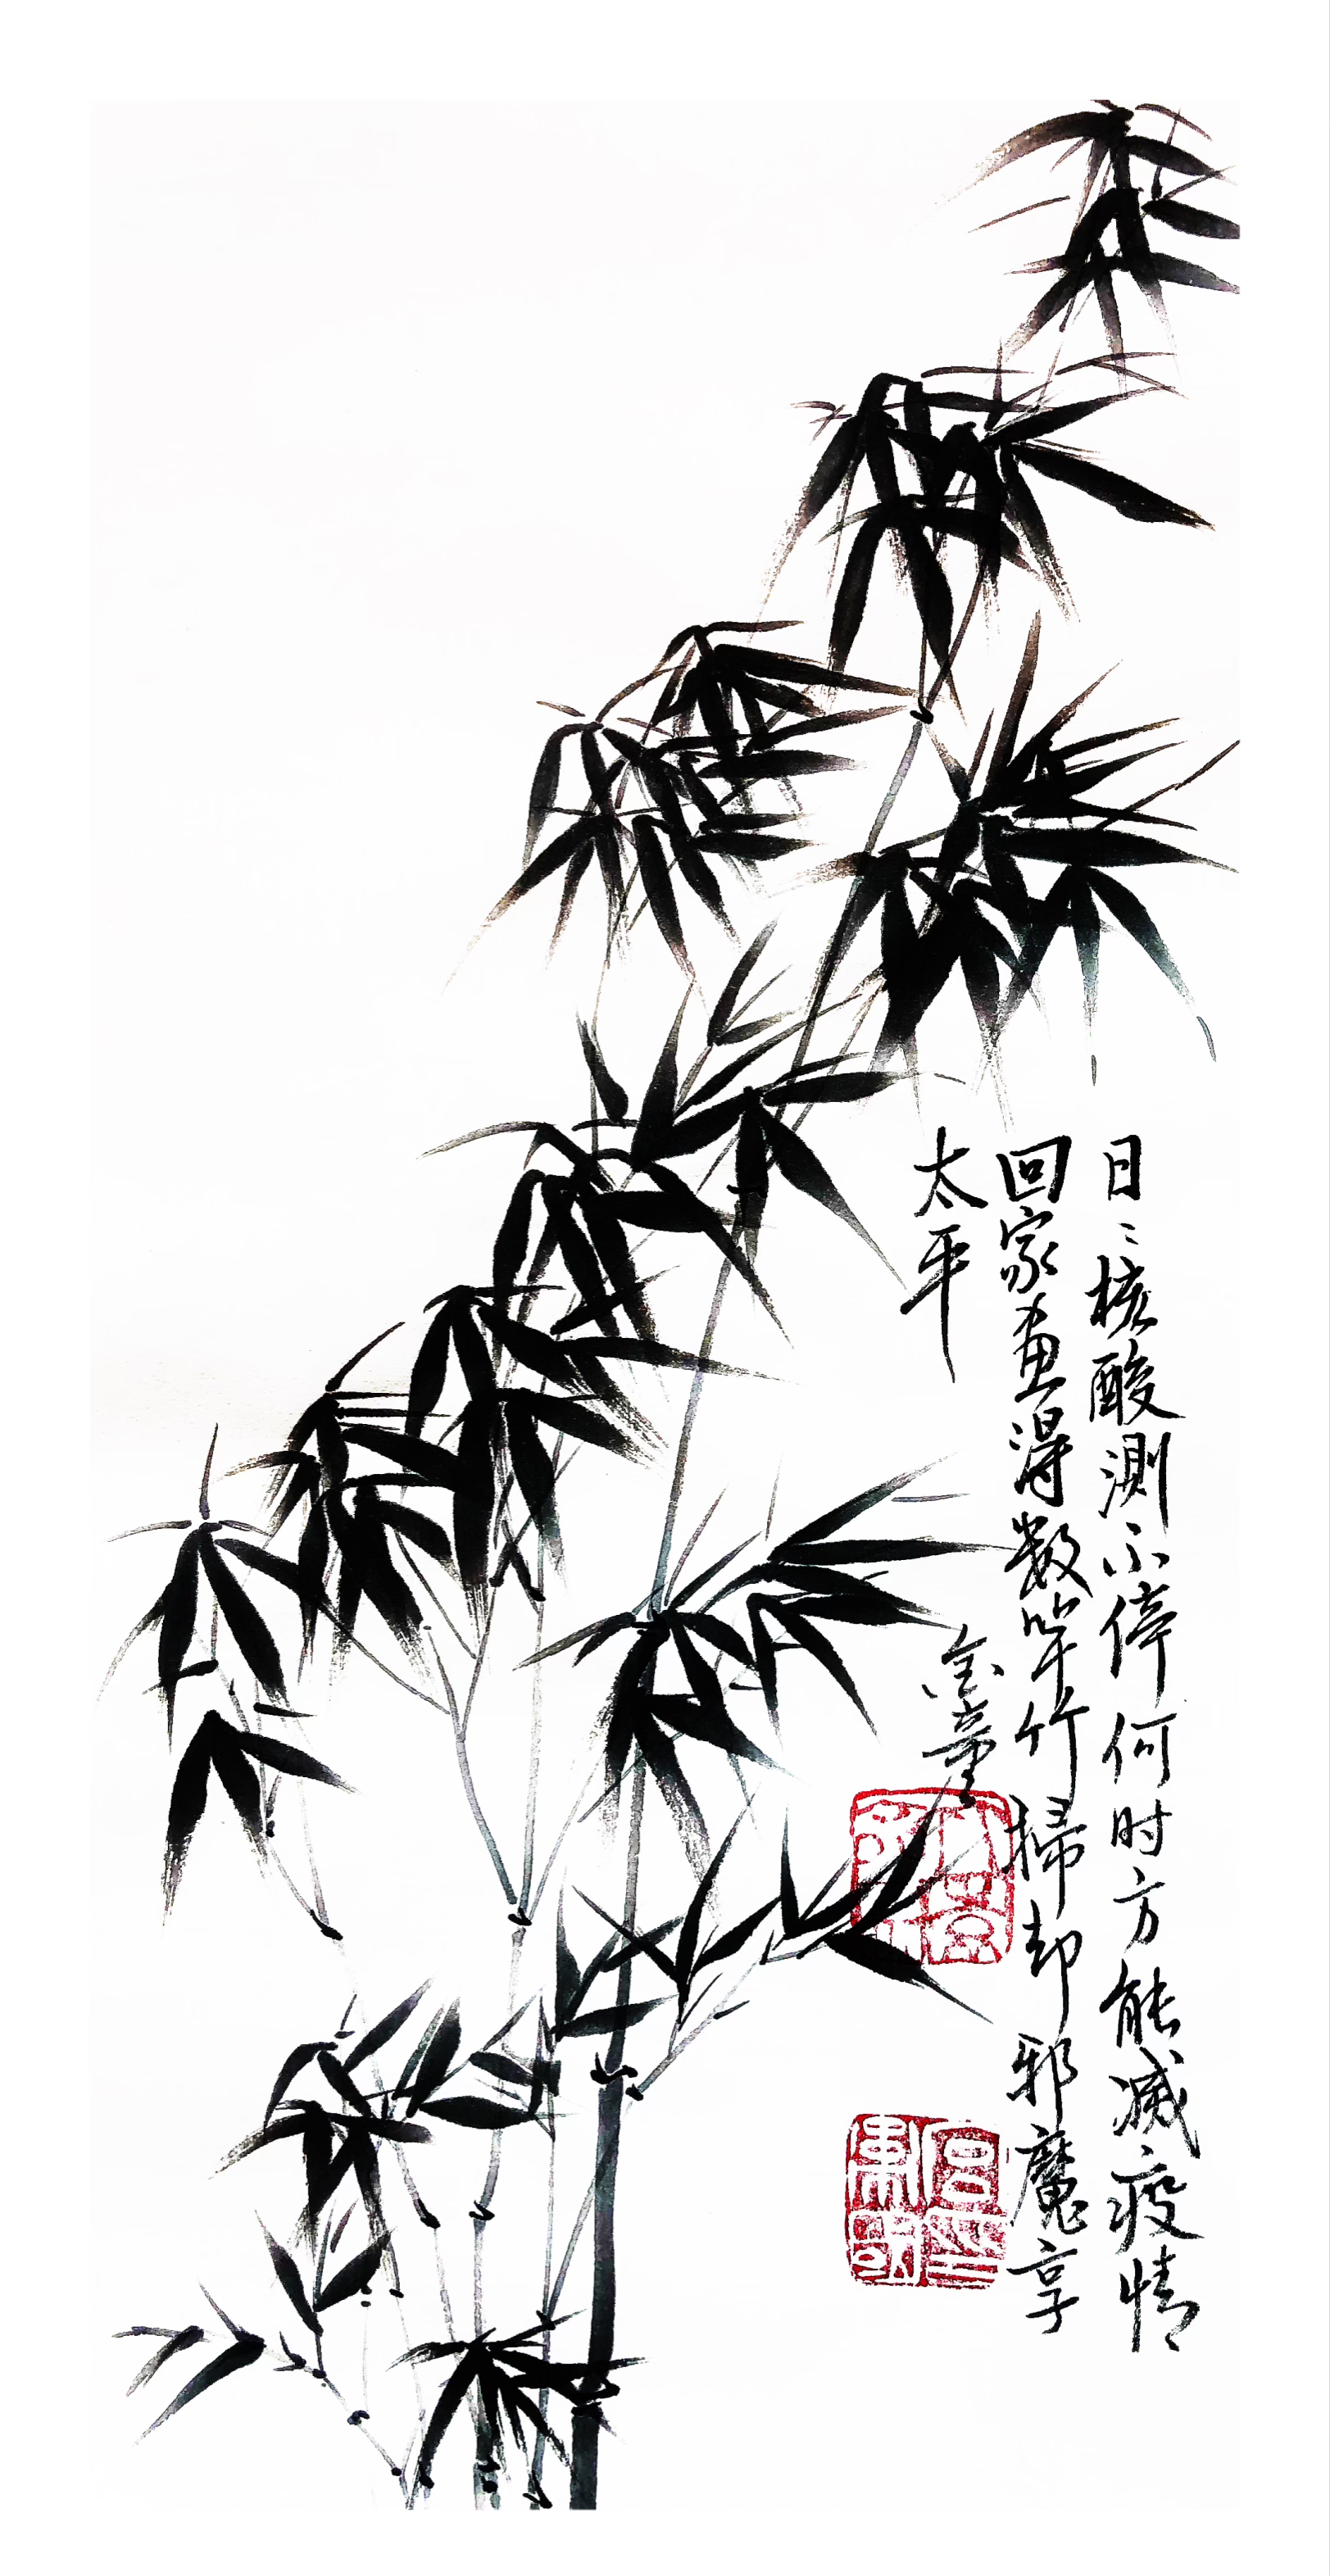 日〻核酸测不停何时方能减疫情
回家画得数竿竹掃却邪魔享
太平